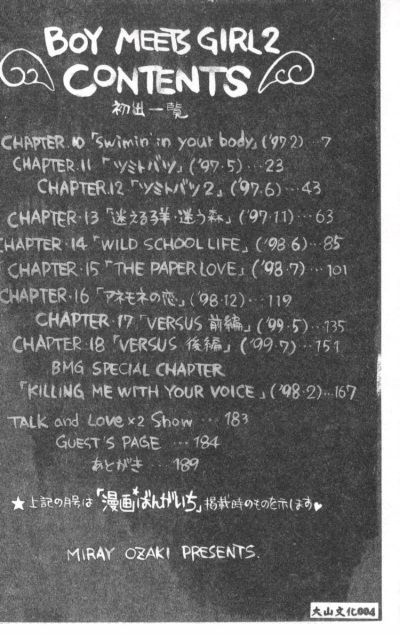 BOY MEETS GIRL2
CONTENTS
初出一覧
CHAPTER・10「swimin' in your body」('97・2)…7
CHAPTER・11「ツミトバツ」('97・5)…23
CHAPTER・12「ツミトバツ2」('97・6)…43
CHAPTER・13「迷える羊・迷う森」('97・11)…63
CHAPTER・14「WILD SCHOOL LIFE」('98・6)…85
CHAPTER・15「THE PAPER LOVE」('98・7)…101
CHAPTER・16「アネモネの恋」('98・12)…119
CHAPTER・17「VERSUS 前編」('99・5)…135
CHAPTER・18「VERSUS 後編」('99・7)…151
BMG SPECIAL CHAPTER
「KILLING ME WITH YOUR VOICE」('98・2)…167
TALK and Love×2 Show …183
GUEST'S PAGE …184
あとがき…189
★上記の月号は「漫画ばんがいち」掲載時のものを示します♥
MIRAY OZAKI PRESENTS.
大山文化004